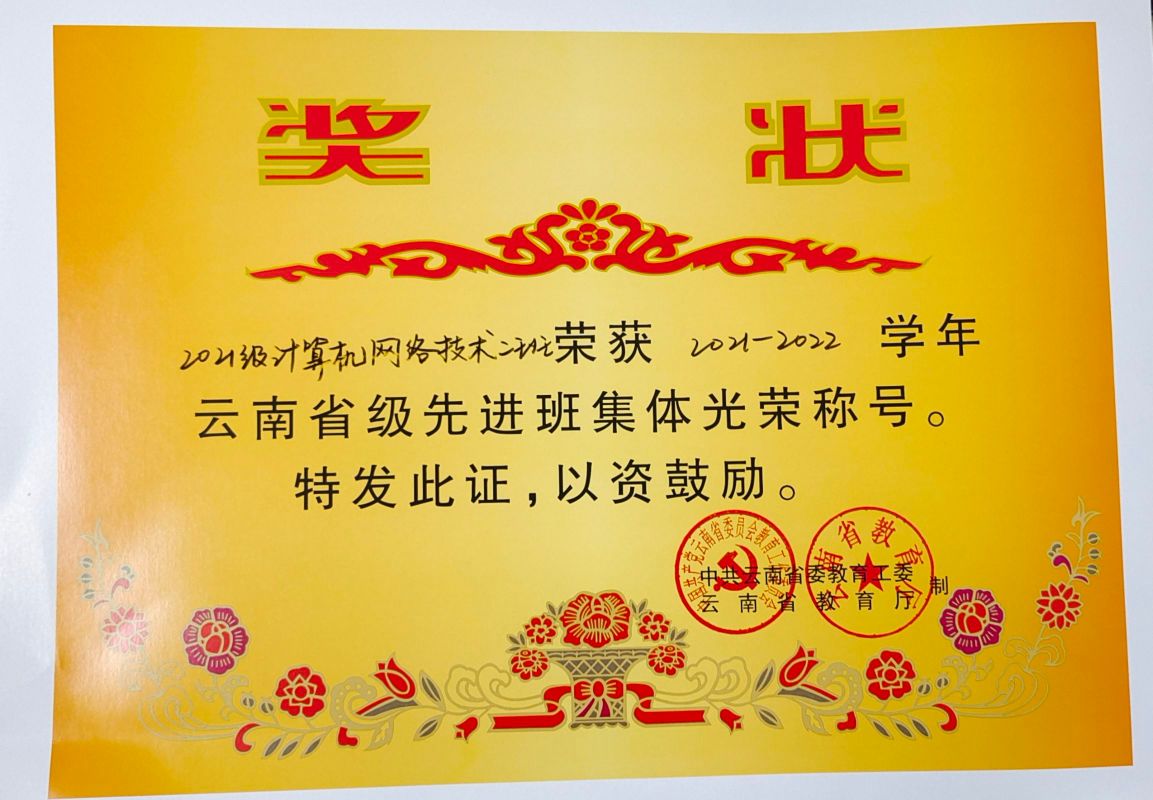 奖 状
2021级计算机网络技术二班荣获 2021-2022 学年
云南省级先进班集体光荣称号。
特发此证,以资鼓励。
中国共产党云南省委员会教育工作委员会
云南省教育厅
中共云南省委教育工委
云南省教育厅 制